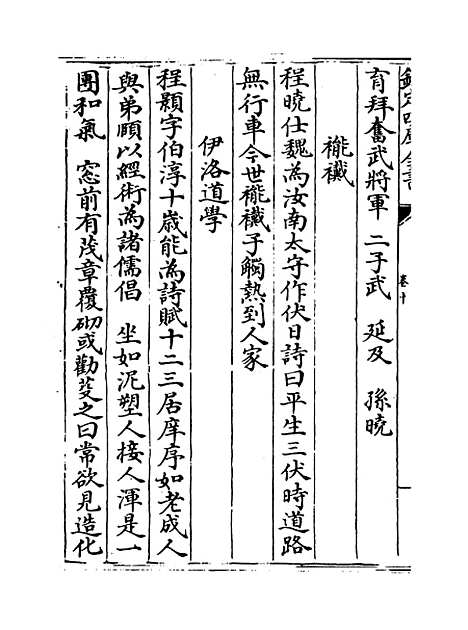 欽定四庫全書
卷十
育拜奮武將軍 二子武 延及 孫曉
褦襶
程曉仕魏為汝南太守作伏日詩曰平生三伏時道路
無行車今世褦襶子觸熱到人家
伊洛道學
程顥字伯淳十歲能為詩賦十二三居庠序如老成人
與弟頤以經術為諸儒倡 坐如泥塑人接人渾是一
團和氣 窓前有茂章覆砌或勸芟之曰常欲見造化